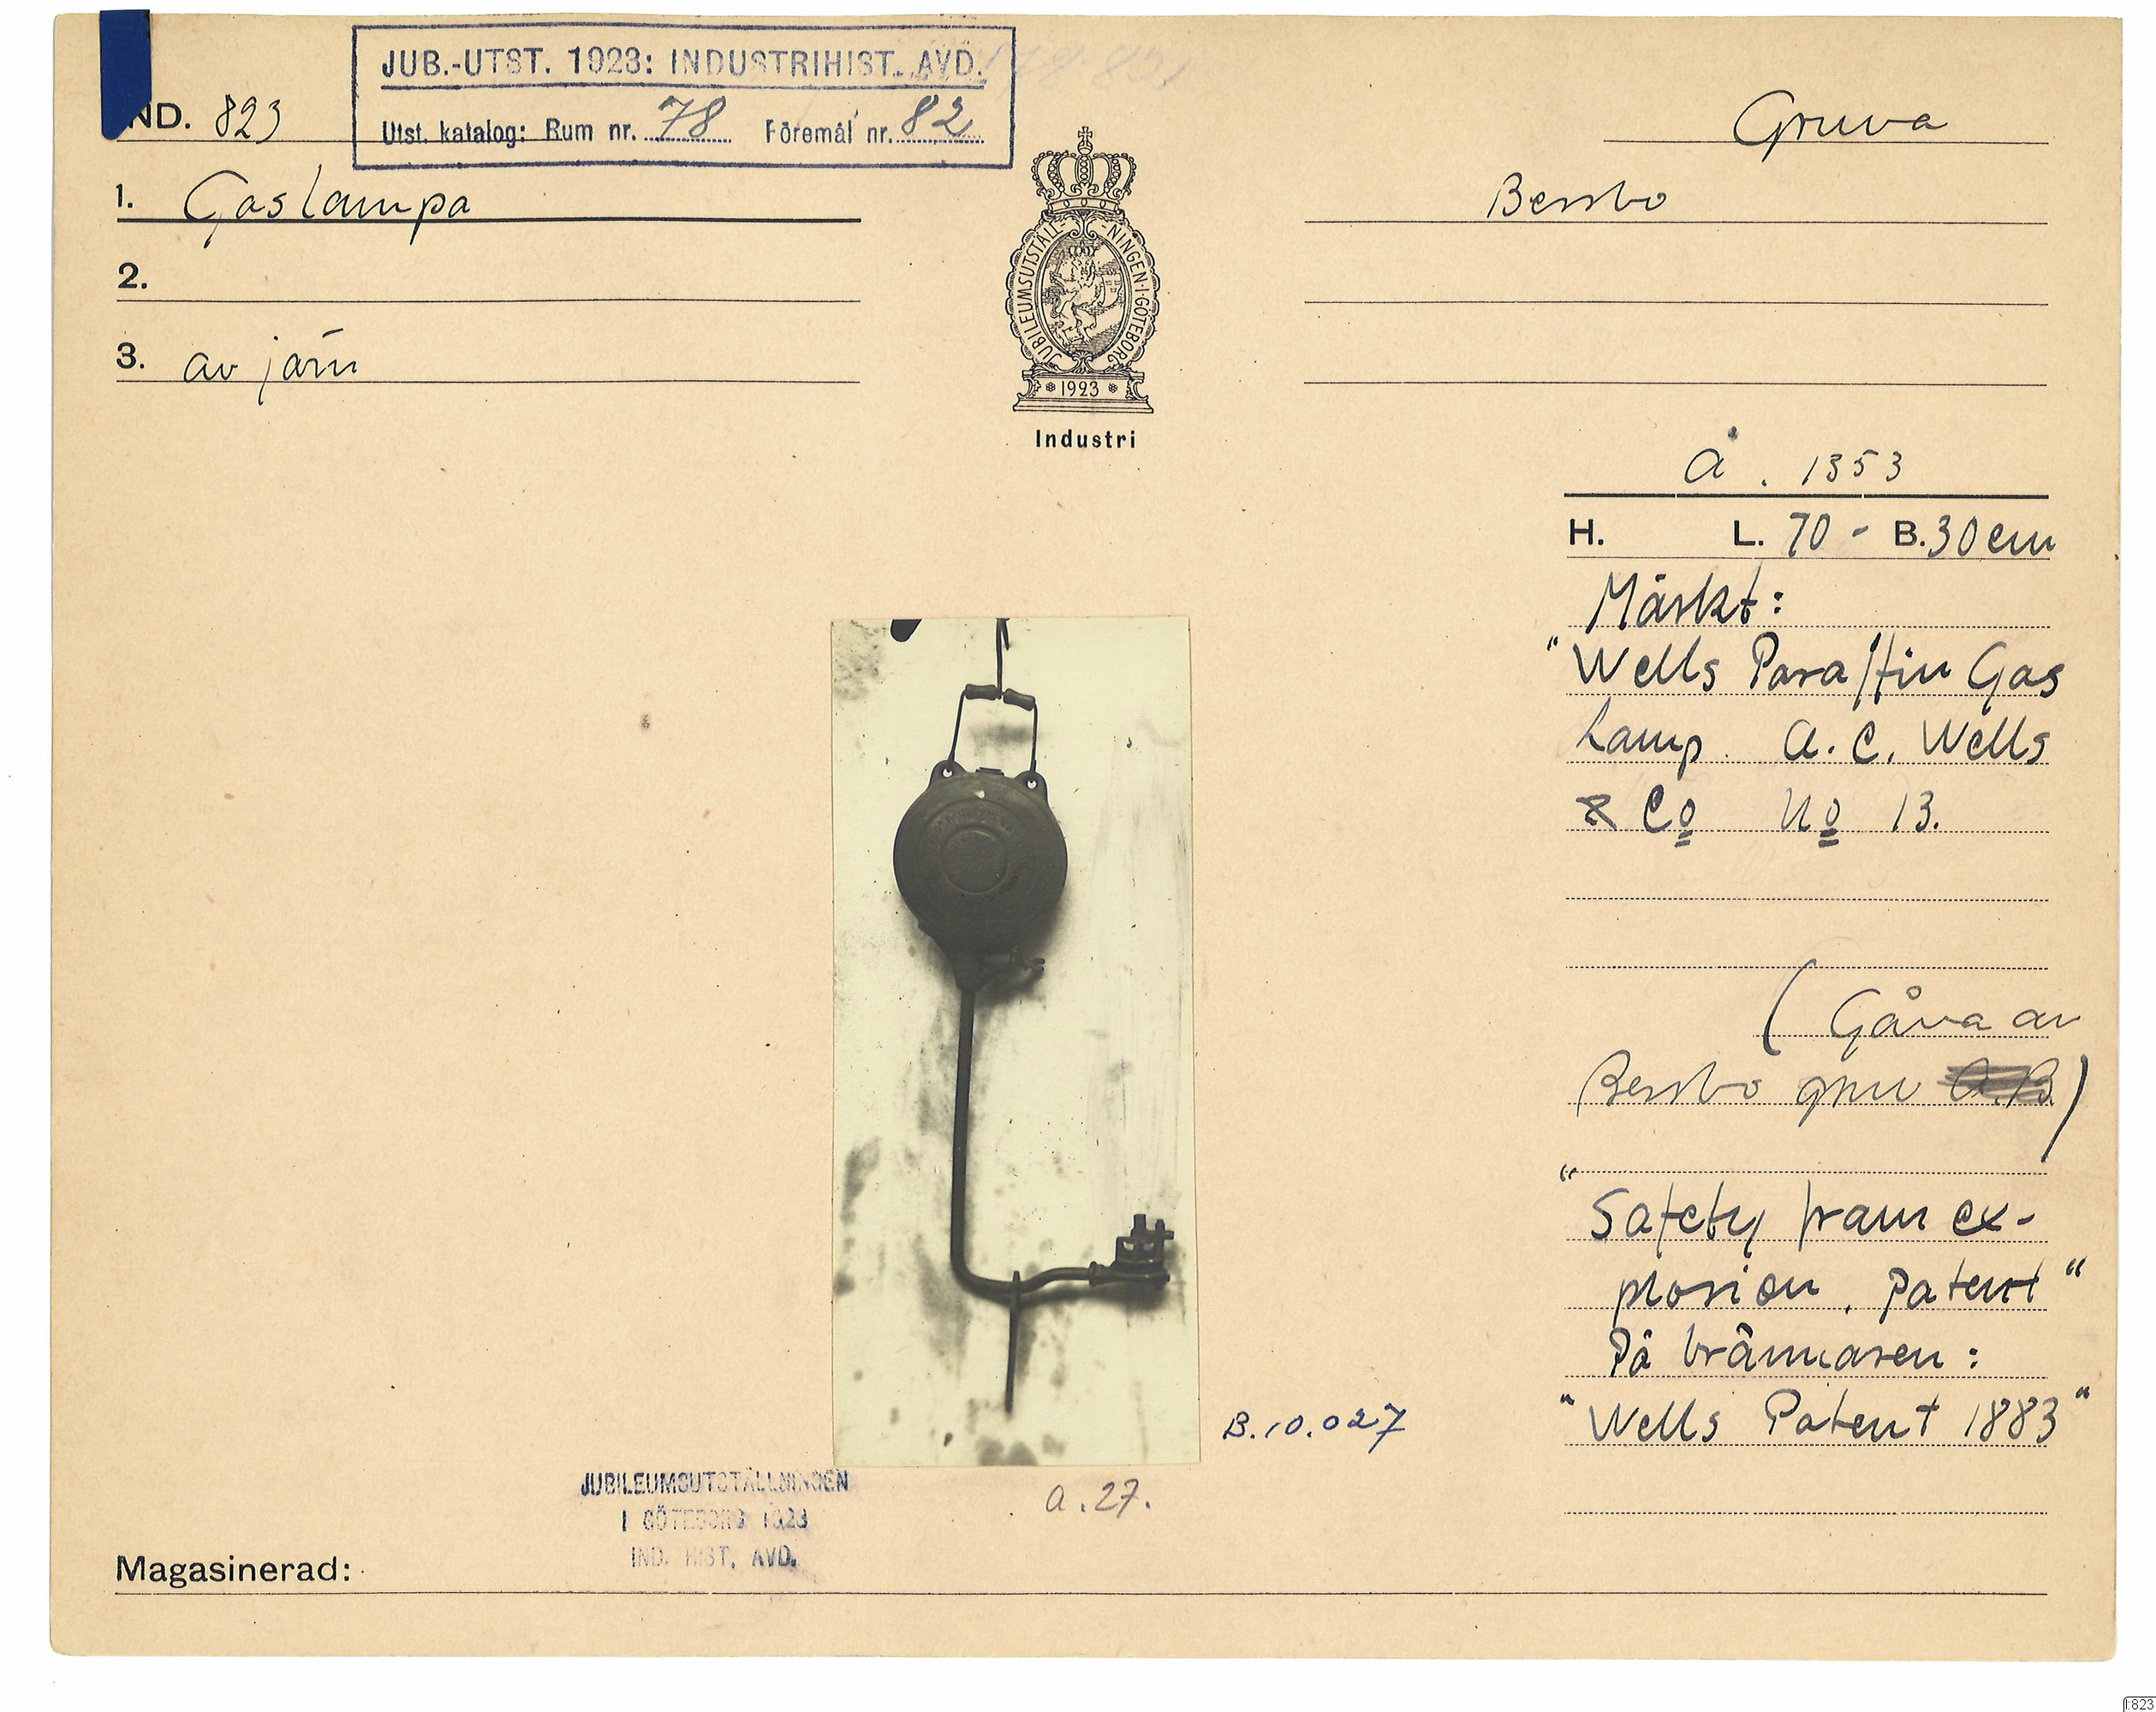 JUB.-UTST. 1923: INDUSTRIHIST. AVD.
IND. 823
Utst. katalog: Rum nr. 78 Föremål nr. 82
Gruva
1. Gaslampa
Bersbo
2.
3. av järn
JUBILEUMSUTSTÄLL-NINGEN·I·GÖTEBORG
1923
Industri
Å. 1353
H. L. 70 - B. 30 cm
Märkt:
"Wells Paraffin Gas
Lamp. A. C. Wells
& Co No 13.
(Gåva av
Bersbo gruv A.B.)
"Safety from ex-
plosion. Patent"
På brännaren:
"Wells Patent 1883"
B.10.027
a.27.
JUBILEUMSUTSTÄLLNINGEN
I GÖTEBORG 1923
IND. HIST. AVD.
Magasinerad:
I:823